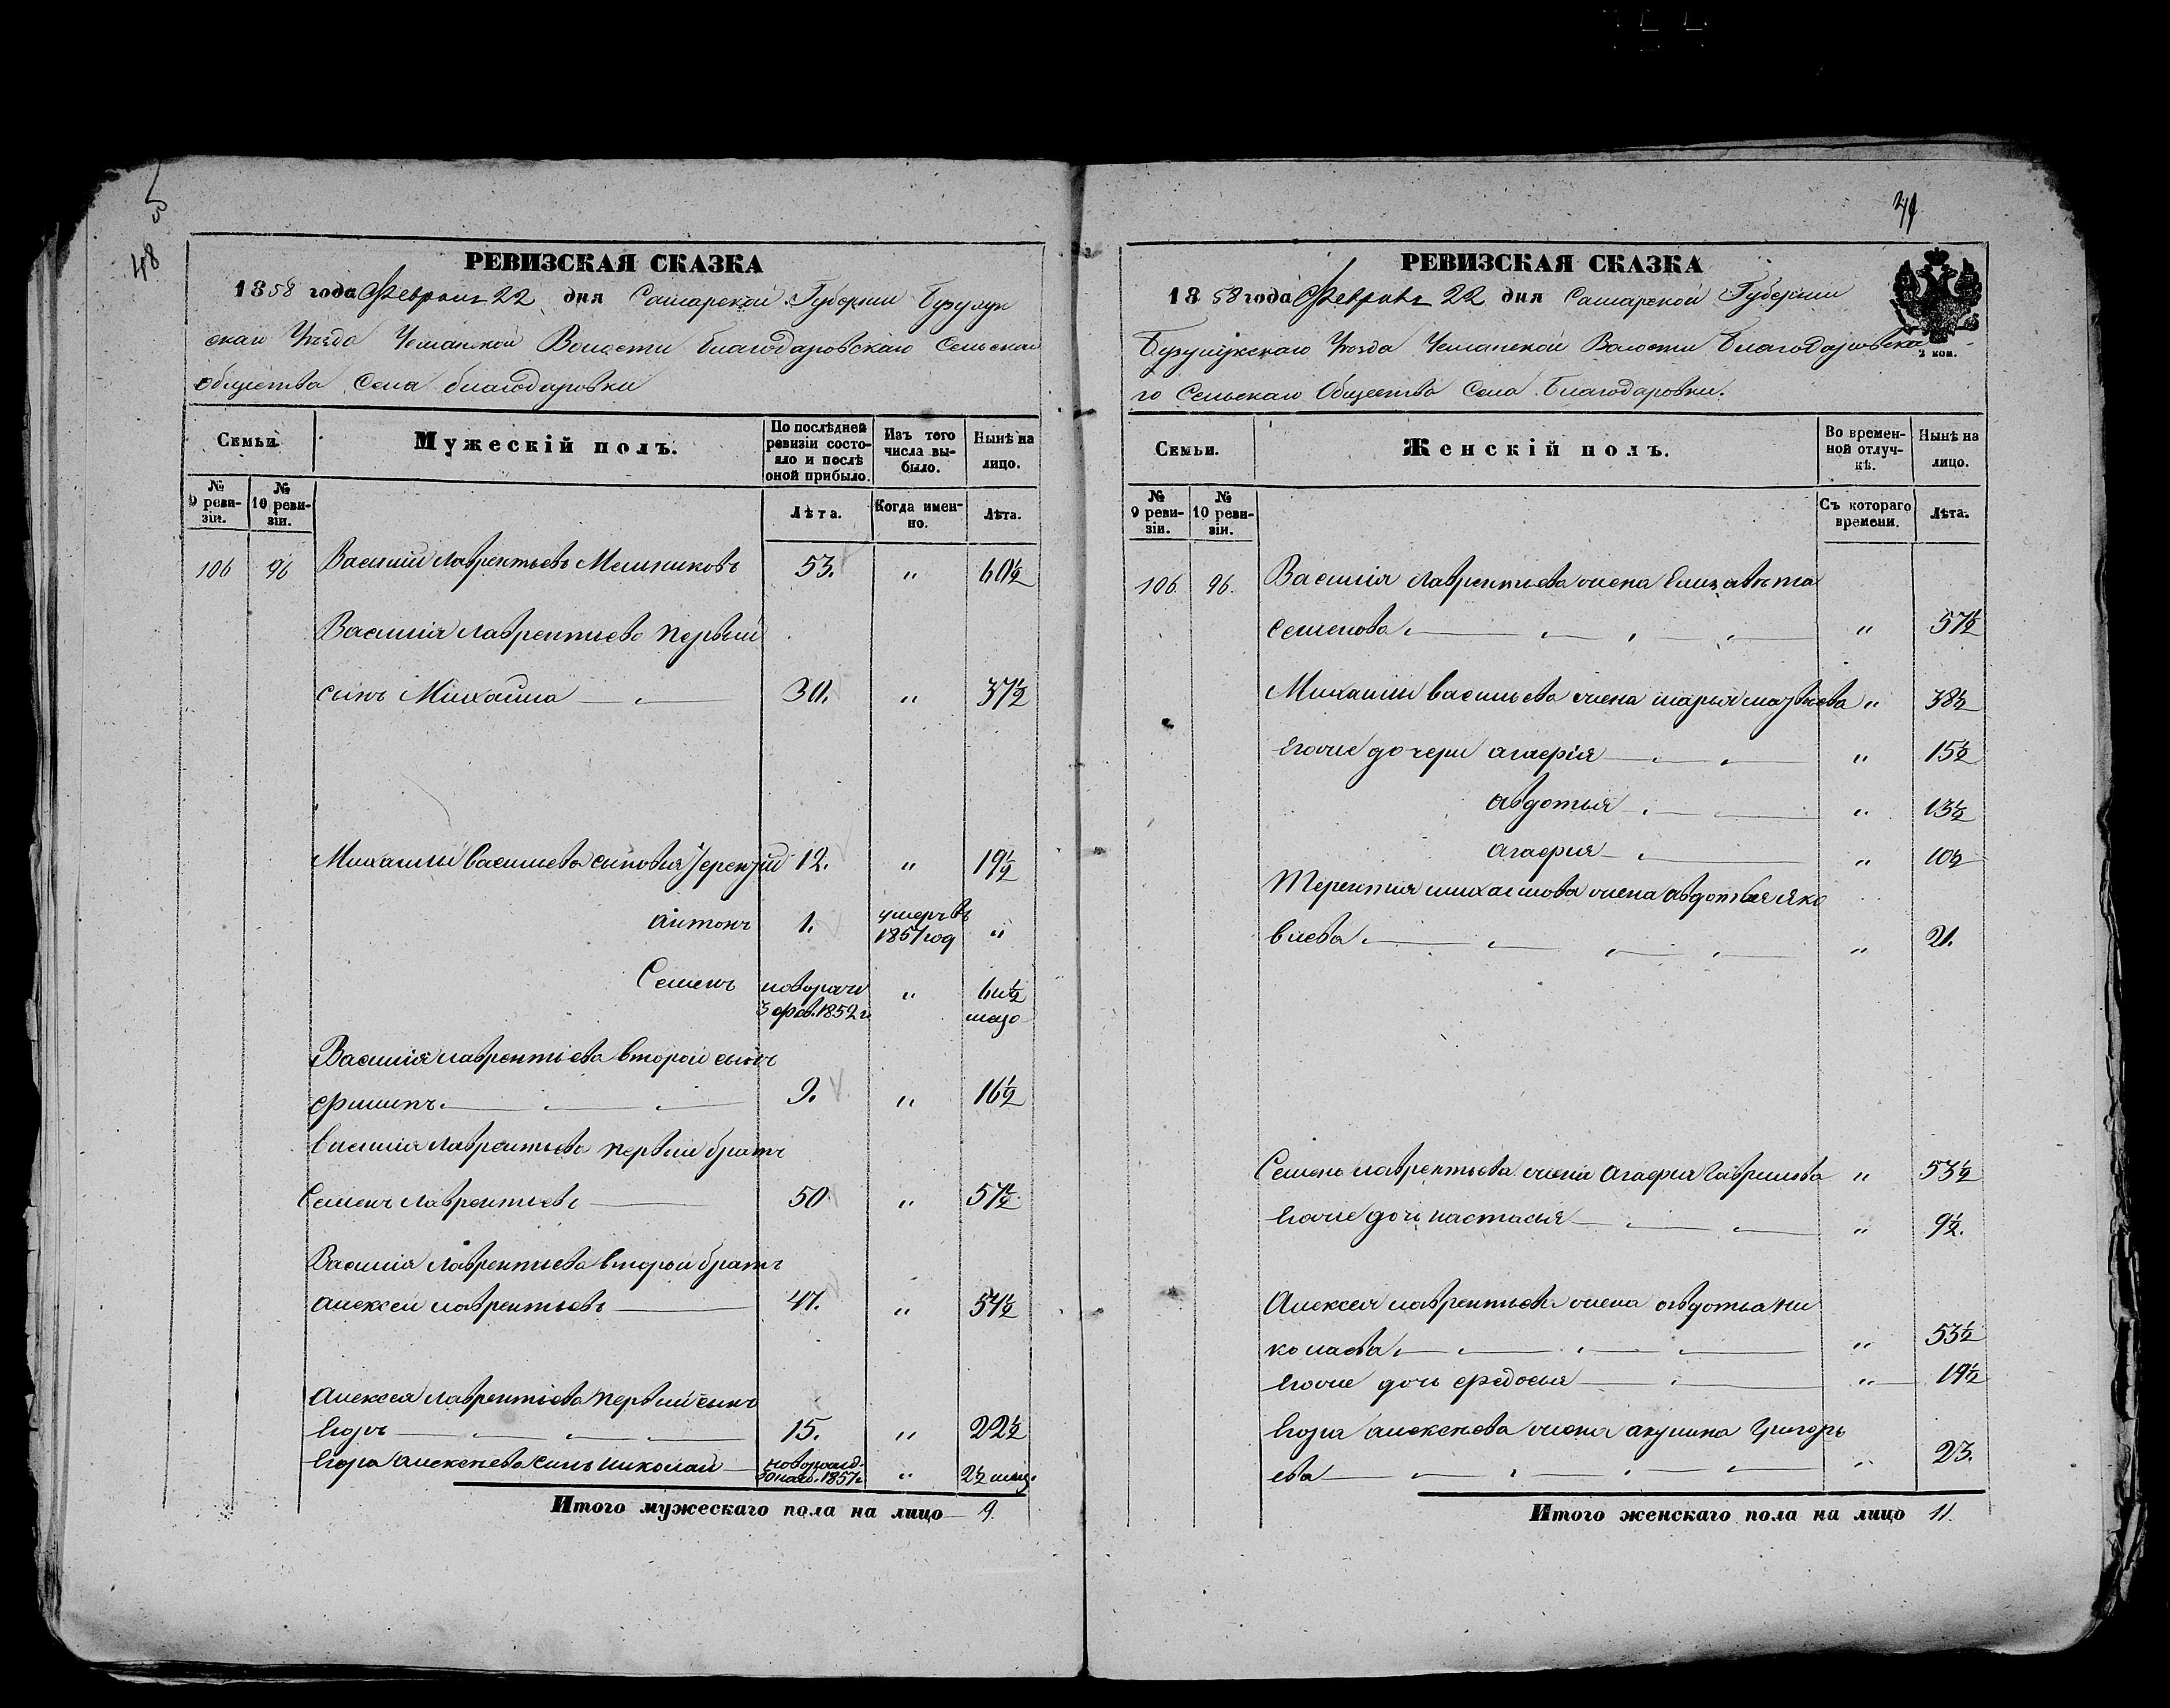 48
РЕВИЗСКАЯ СКАЗКА
1858 года Февраля 22 дня Самарской Губернии Бузулук
скаго Уезда Чеманской Волости Благодаровскаго Сельскаго
общества Села благодаровки
Семьи.
Мужескій полъ.
По послѣдней ревизіи состояло и послѣ оной прибыло.
Изъ того числа выбыло.
Нынѣ на лицо.
№ 9 ревизіи.
№ 10 ревизіи.
Лѣта.
Когда именно.
Лѣта.
106 96 Василий Лаврентьевъ Мельниковъ 53. " 60½
Василія Лаврентьева первый
сынъ Михайла 30. " 37½
Михаилы Васильева сыновья Терентий 12. " 19½
антонъ 1. умеръ въ 1851 год "
Семенъ новорожд 3 фев. 1852 г " 6 и ½
Василія лаврентіева второй сынъ
филипъ. 9. " 16½
Василія Лаврентьева первый братъ
Семенъ Лаврентьевъ 50 " 57½
Василія Лаврентьева второй братъ
алексей лаврентьевъ 47. " 54½
алексея лаврентіева первый сынъ
Егоръ 15. " 22½
Егора алексеева сынъ николай новорожд. 1857 г " 2½ мес.
Итого мужескаго пола на лицо 9.
49
РЕВИЗСКАЯ СКАЗКА
1858 года Февраля 22 дня Самарской Губернии
Бузулукскаго Уезда Чеманской Волости Благодаровска
2 коп.
го Сельскаго Общества Села Благодаровки.
Семьи.
Женскій полъ.
Во временной отлучкѣ.
Нынѣ на лицо.
№ 9 ревизіи.
№ 10 ревизіи.
Съ котораго времени.
Лѣта.
106. 96. Василія Лаврентьева жена Елизавѣта
Семенова " 57½
Михаилы васильева жена марья матвѣева " 38½
Егоже дочери агафія " 15½
авдотья " 13½
агафия " 10½
Терентия михаилова жена авдотья яко
влева " 21.
Семена лаврентьева жена агафия гаврилова " 53½
Егоже дочь настасья " 9½.
Алексея лаврентьева жена авдотья ни
колаева " 53½
Егоже дочь федосья " 19½
Егора алексеева жена акулина Григорь
ева " 23.
Итого женскаго пола на лицо 11.